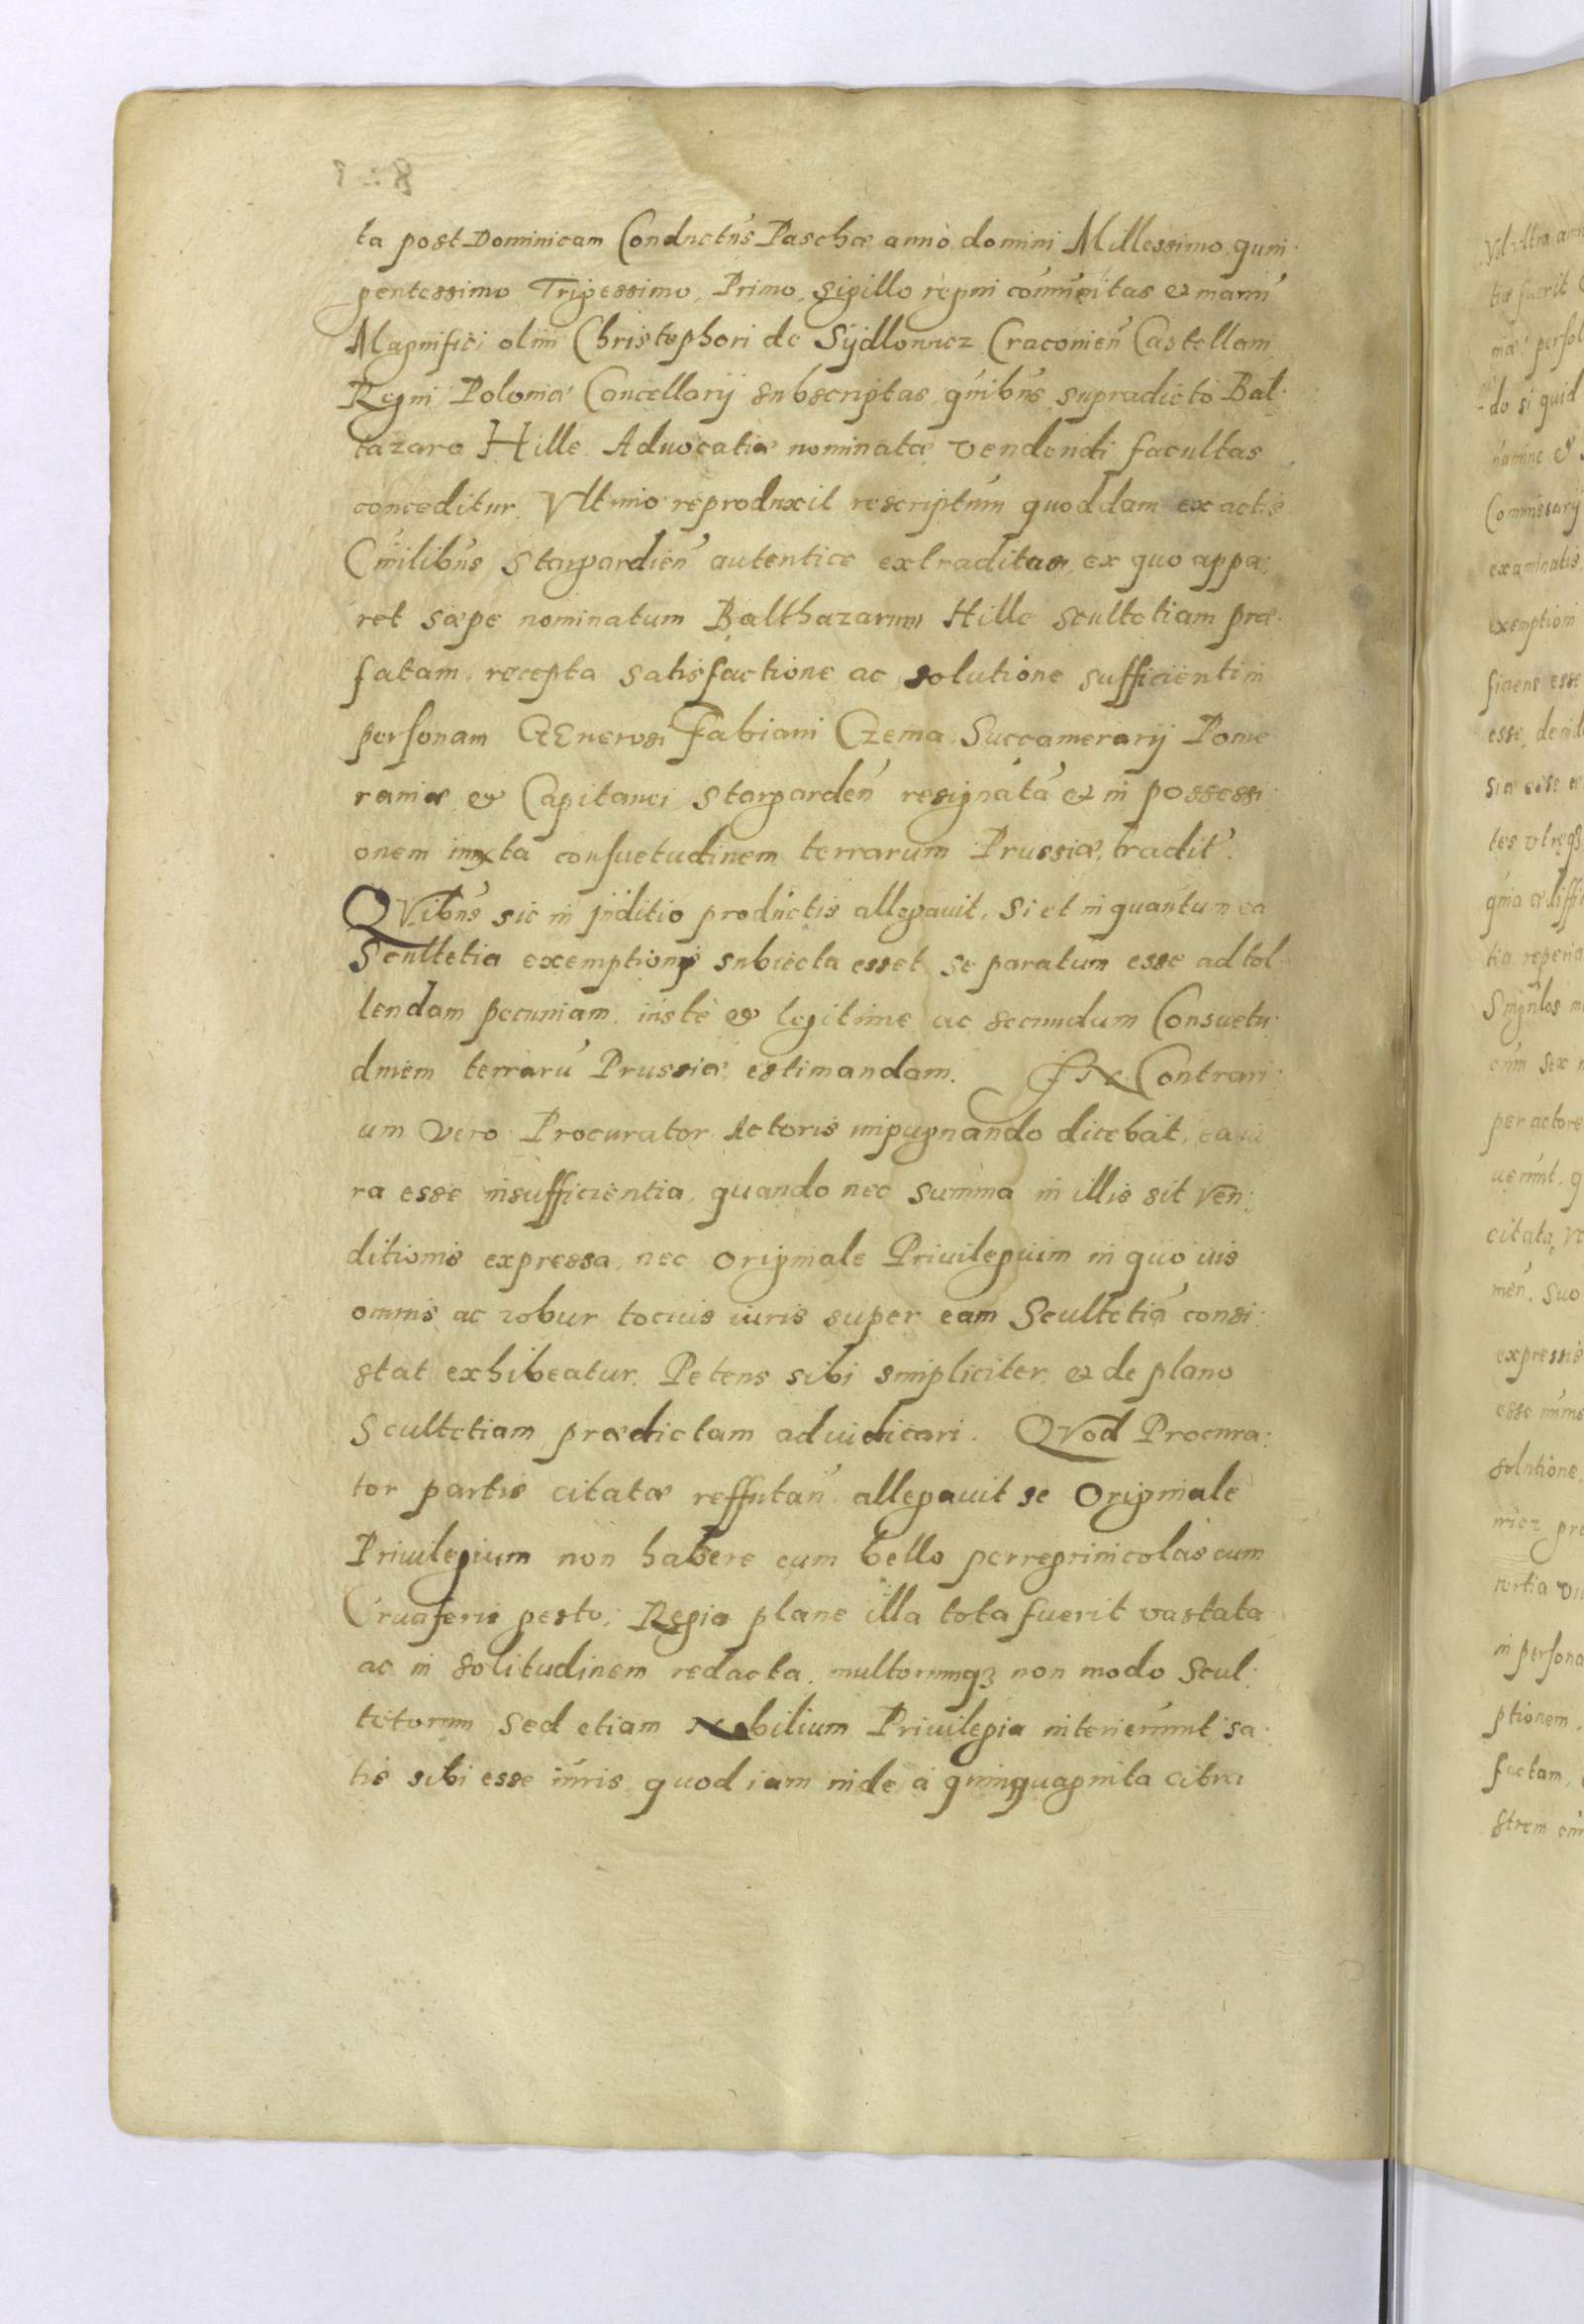 ta post Dominicam Conductus Paschæ anno domini Millessimo quin:
gentessimo Trigessimo Primo sigillo regni comunitas et manu
Magnifici olim Christophori de Sijdlowicz Cracouien Castellani
Regni Poloniæ Cancellarij subscriptas quibus supradicto Bal:
tazaro Hille Aduocatiæ nominatæ vendendi facultas
conceditur. Vltimo reproduxit rescriptum quoddam ex actis
Ciuilibus Stargardien autentice extraditas, ex quo appa:
ret sæpe nominatum Balthazarum Hille scultetiam præ:
fatam, recepta satisfactione ac solutione sufficienti in
personam GEnerosi Fabiani Czema Succamerarij Pome
raniæ et Capitanei Stargarden resignatã et in possessi:
onem iuxta consuetudinem terrarum Prussiæ, tradit.
QVibus sic in juditio productis allegauit, si et in quantum ea
Scultetia exemptioni subiecta esset se paratum esse ad tol:
lendam pecuniam iuste et legitime ac secundum Consuetu:
dinem terrarũ Prussiæ estimandam. IN Contrari:
um vero Procurator Actoris impugnando dicebat, ea iu
ra esse insufficientia, quando nec summa in illis sit ven:
ditionis expressa, nec Originale Priuilegium in quo uis
omnis ac robur tocius iuris super eam Scultetiã consi:
stat exhibeatur. Petens sibi simpliciter et de plano
Scultetiam prædictam adiudicari. QVod Procura:
tor partis citatæ reffutan allegauit se Originale
Priuilegium non habere cum bello perregrinicolas cum
Cruciferis gesto, Regio plane illa tota fuerit vastata
ac in solitudinem redacta, multorumqȝ non modo Scul:
tetorum sed etiam Nobilium Priuilegia interierunt sa:
tis sibi esse iuris quod iam inde a quinquaginta citra